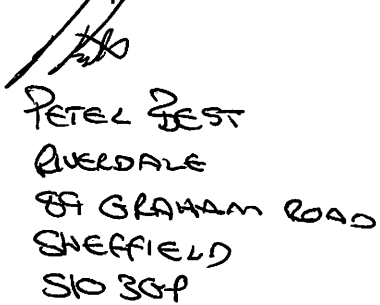 PETER BEST
RIVERDALE
89 GRAHAM ROAD
SHEFFIELD
S10 3GP